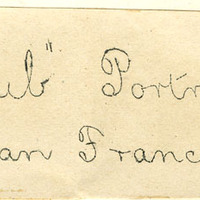 ub" Portr
an Franc